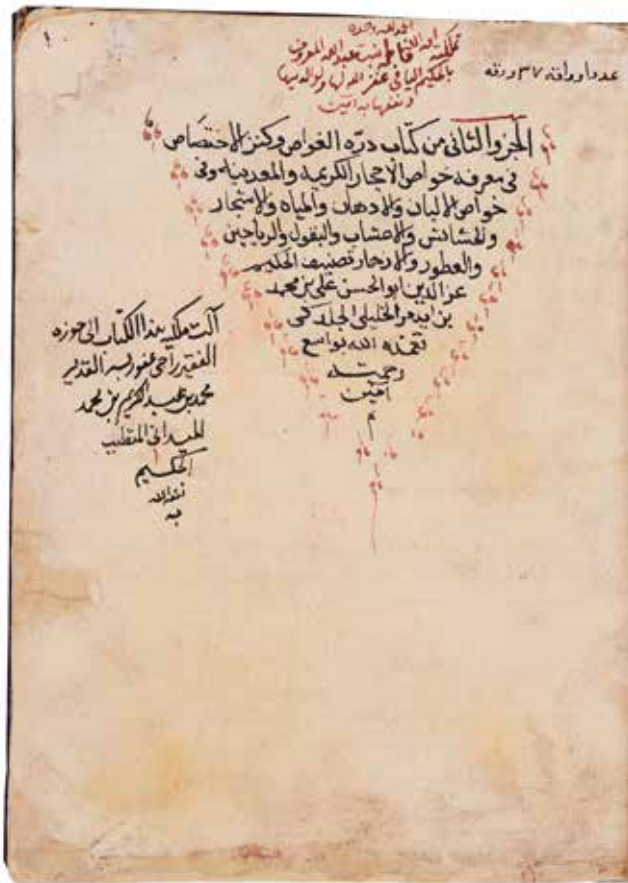 ١٠
الحمد لله وحده
تملكته امة الله فاطمة بنت عبد الله المعروف
بالحكيم اليافي غفر الله لها ولوالديها
ونفعها به امين
عدد اوراقه ٣٧ ورقه
الجزو الثاني من كتاب درّه الغواص وكنز الاختصاص
في معرفة خواص الاحجار الكريمة والمعدنيه وفي
خواص الالبان والادهان والمياه والاشجار
والحشائش والاعشاب والبقول والرياحين
والعطور والازهار تصنيف الحكيم
عز الدين ابو الحسن علي بن محمد
بن ايدمر الخليلي الجلدكي
تغمده الله بواسع
رحمته
امين
م
آلت ملكيه هذا الكتاب الى حوزه
الفقير راجي عفو ربه القدير
محمد بن عبد الكريم بن محمد
الميداني المتطبب
الحكيم
نفعه الله
به